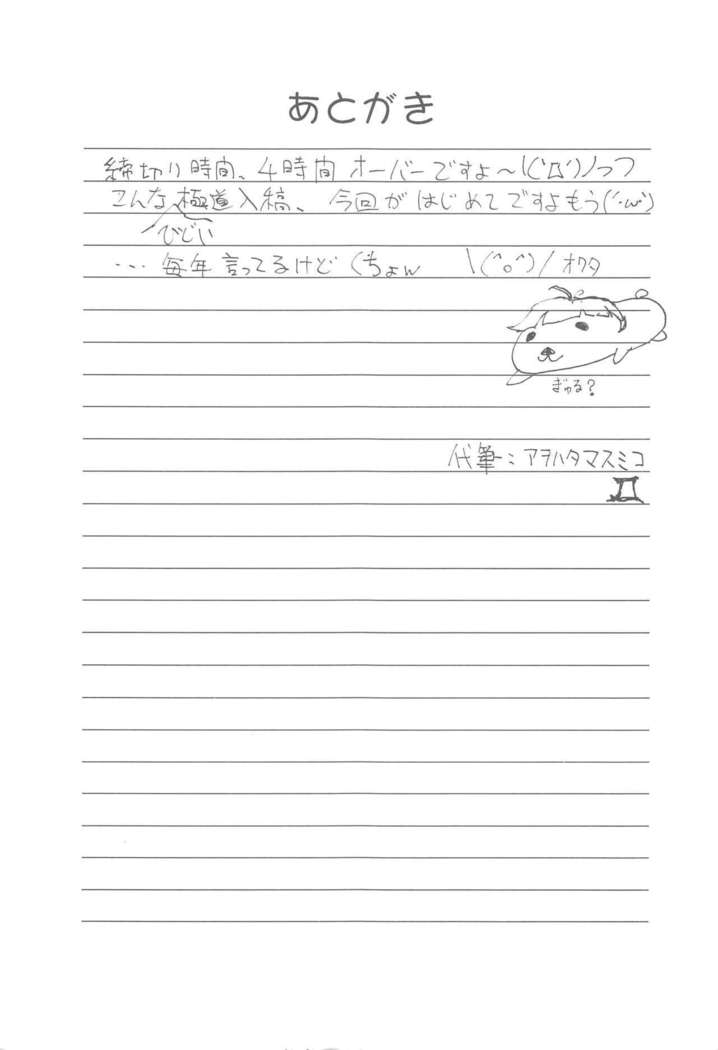 あとがき
締切り時間、4時間オーバーですよ~\(('Д')ノっつ
こんな極道入稿、今回がはじめてですよもう(´・ω・`)
ひじい
... 毎年言ってるけど \(^o^)/ オワタ
ぎゅる?
代筆:アヲハタマスミコ